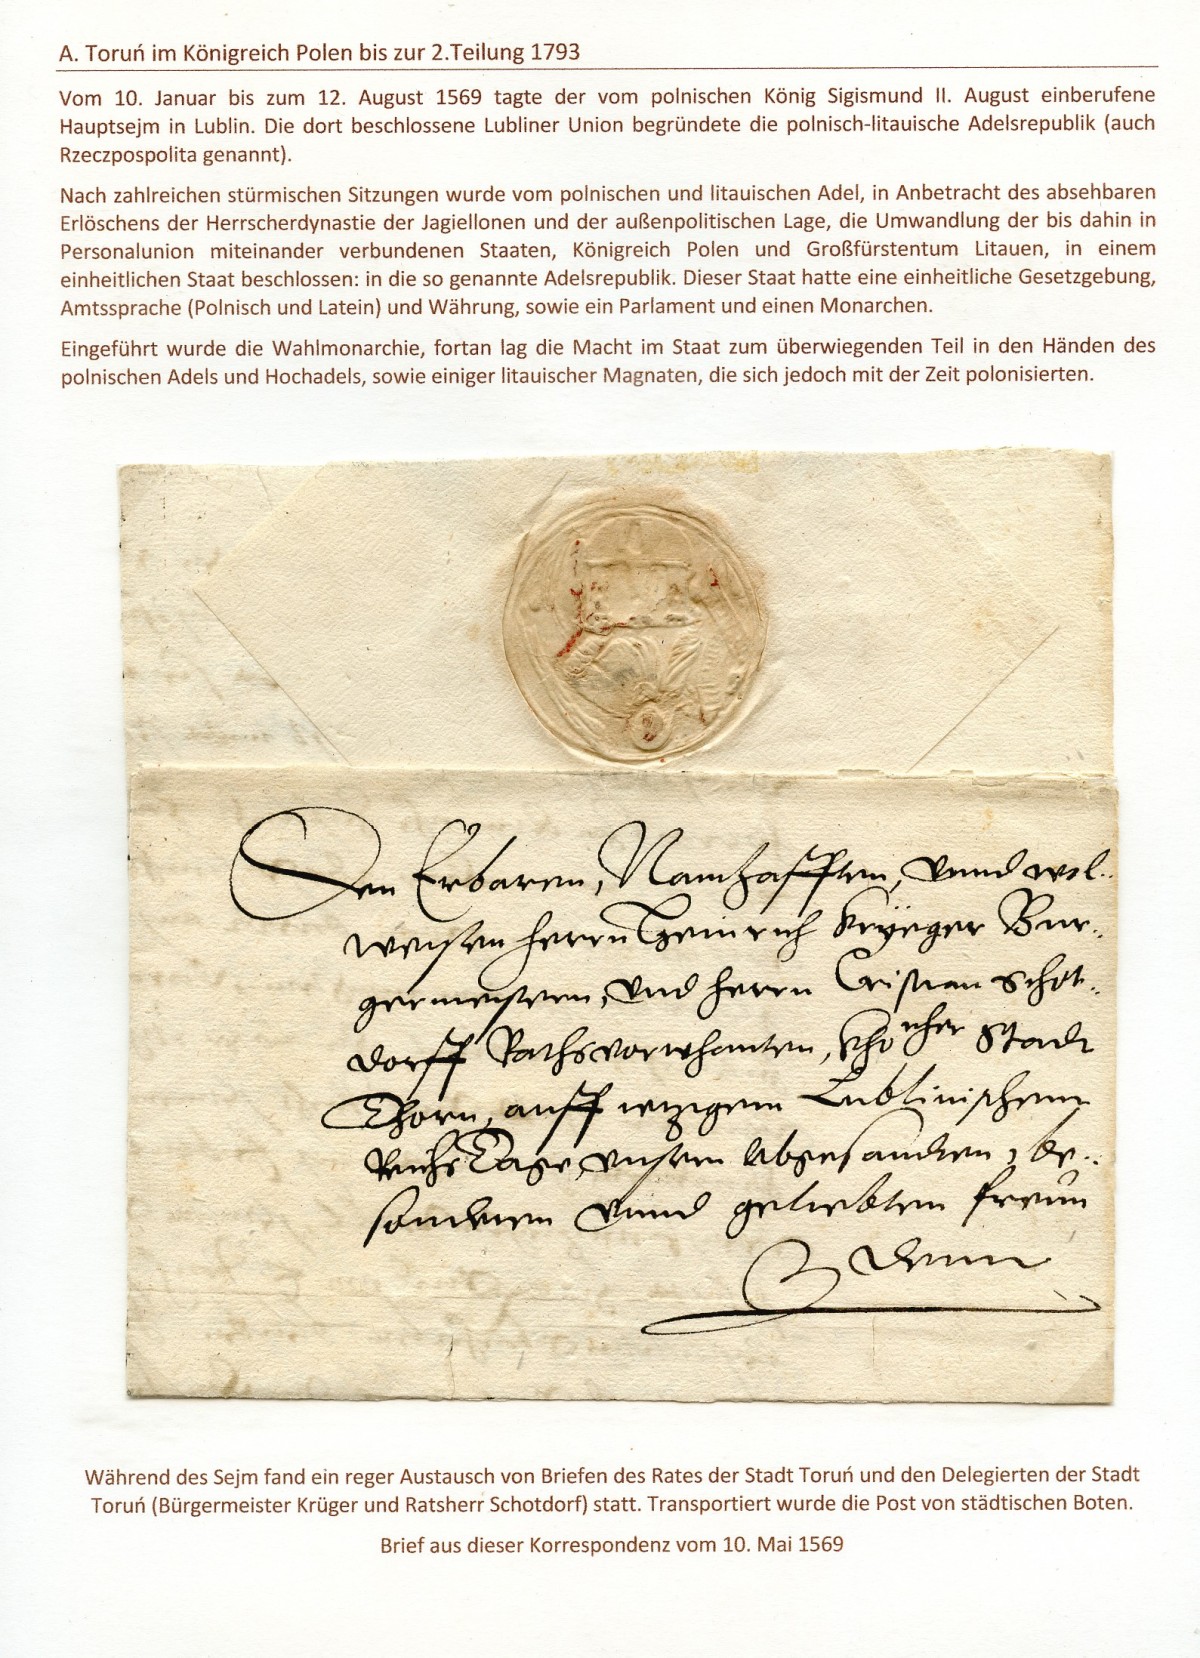 A. Toruń im Königreich Polen bis zur 2.Teilung 1793
Vom 10. Januar bis zum 12. August 1569 tagte der vom polnischen König Sigismund II. August einberufene
Hauptsejm in Lublin. Die dort beschlossene Lubliner Union begründete die polnisch-litauische Adelsrepublik (auch
Rzeczpospolita genannt).
Nach zahlreichen stürmischen Sitzungen wurde vom polnischen und litauischen Adel, in Anbetracht des absehbaren
Erlöschens der Herrscherdynastie der Jagiellonen und der außenpolitischen Lage, die Umwandlung der bis dahin in
Personalunion miteinander verbundenen Staaten, Königreich Polen und Großfürstentum Litauen, in einem
einheitlichen Staat beschlossen: in die so genannte Adelsrepublik. Dieser Staat hatte eine einheitliche Gesetzgebung,
Amtssprache (Polnisch und Latein) und Währung, sowie ein Parlament und einen Monarchen.
Eingeführt wurde die Wahlmonarchie, fortan lag die Macht im Staat zum überwiegenden Teil in den Händen des
polnischen Adels und Hochadels, sowie einiger litauischer Magnaten, die sich jedoch mit der Zeit polonisierten.
Den Erbaren, Namhafften, vnnd wol-
weisen herrn Heinrich Krÿeger Bur-
germeistern, vnd herrn Cristian Schot-
dorff Rathsvorwhanten, Stadt
Thorn, auff itzigem Lublinischenn
ReichsTage, vnsern Abgesandten, be-
sonderen vnnd geliebten freun
denn
Während des Sejm fand ein reger Austausch von Briefen des Rates der Stadt Toruń und den Delegierten der Stadt
Toruń (Bürgermeister Krüger und Ratsherr Schotdorf) statt. Transportiert wurde die Post von städtischen Boten.
Brief aus dieser Korrespondenz vom 10. Mai 1569